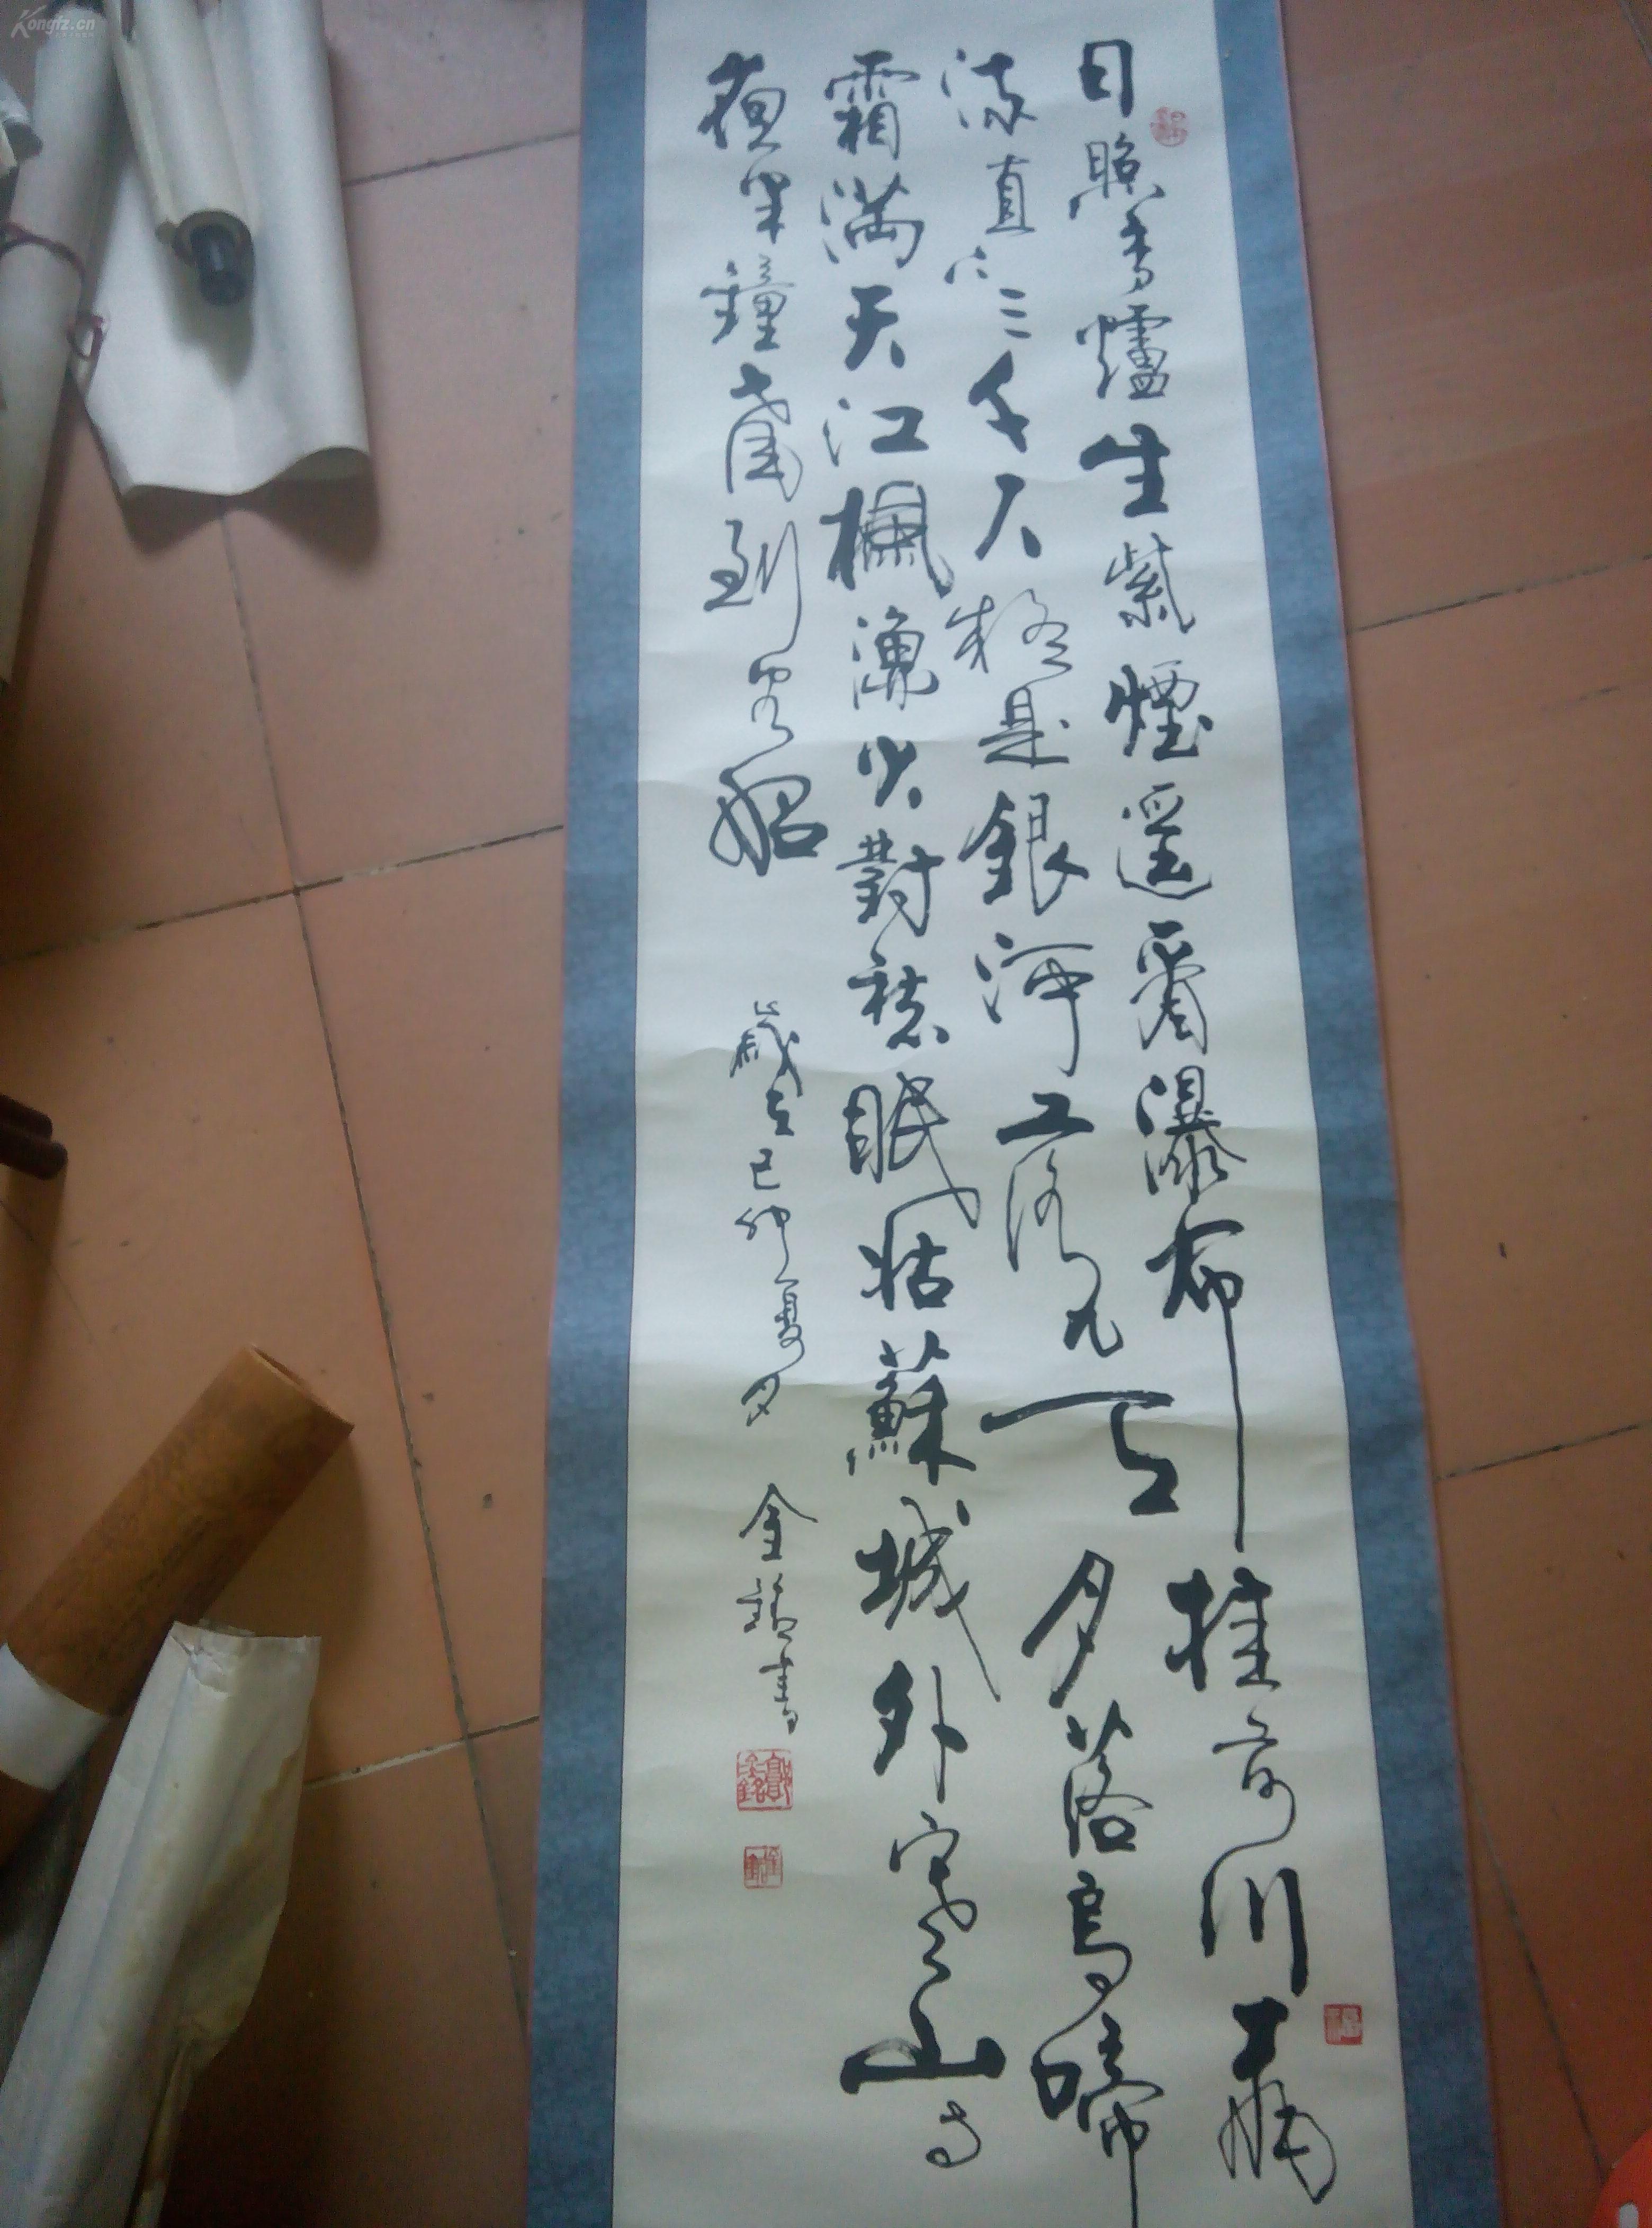 Kongfz.cn
日照香爐生紫煙遥看瀑布挂前川飛
流直下三千尺疑是銀河落九天月落烏啼
霜滿天江楓漁火對愁眠姑蘇城外寒山寺
夜半鐘聲到客船 歲在己卯夏月 金銘書